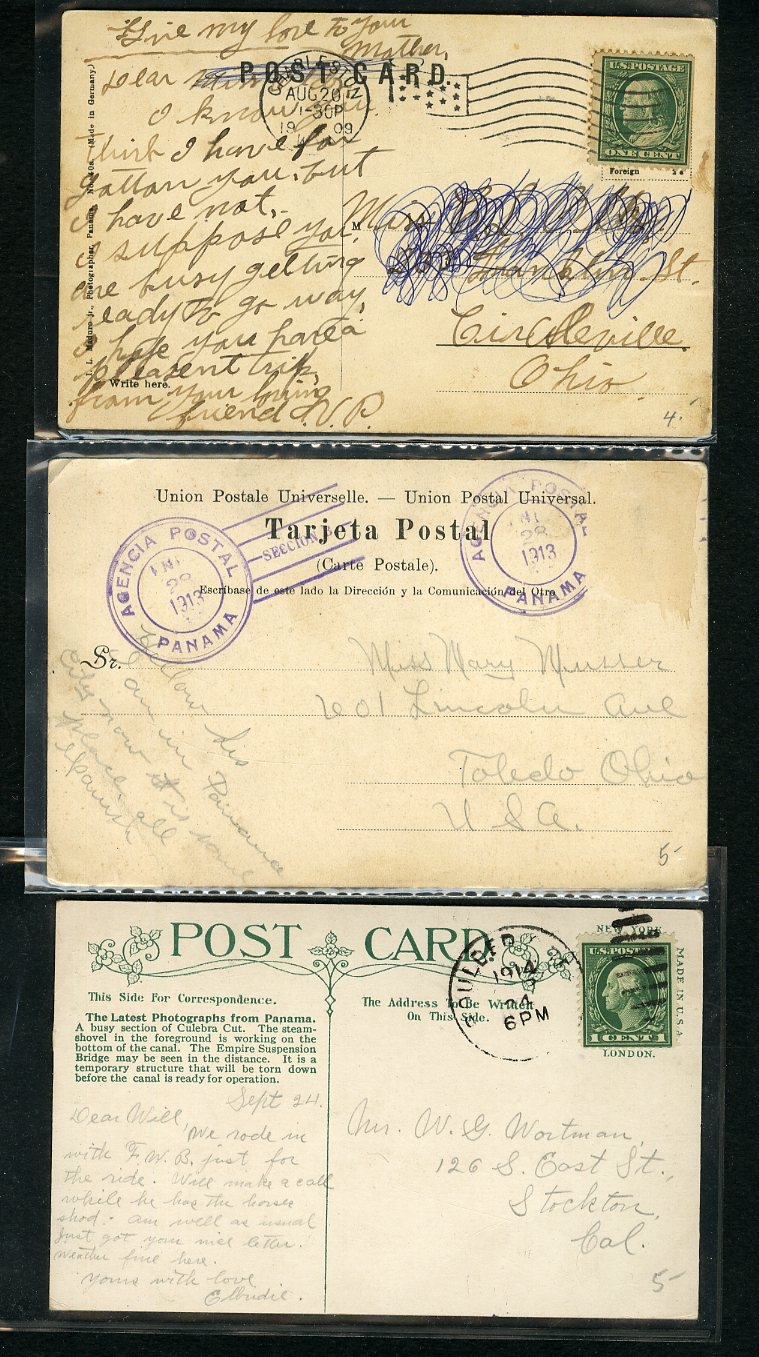 Give my love to your
Mother,
POST CARD.
CHARLESTON
AUG 20
1-30P
1909
U.S. POSTAGE
ONE CENT
Foreign 2c
Dear
I know you
think I have for
gotton you, but
I have not,
I suppose you
are busy getting
ready to go way,
I hope you have a
pleasent trip,
from your loving
friend V.P.
Write here.
I. L. Maduro Jr., Photographer, Panama. (Made in Germany.)
M
Franklin St.
Circleville.
Ohio.
4.-
Union Postale Universelle. — Union Postal Universal.
Tarjeta Postal
(Carte Postale).
Escríbase de este lado la Dirección y la Comunicación del Otro
AGENCIA POSTAL
28
1913
PANAMA
SECCION
AGENCIA POSTAL
28
1913
PANAMA
Sr.
Miss Mary Musser
601 Lincoln Ave
Toledo Ohio
U.S.A.
Hellow Sis
I am in Panama
City now it is some
place all
Spanish
5-
POST CARD
This Side For Correspondence.
The Address To Be Written
On This Side.
The Latest Photographs from Panama.
A busy section of Culebra Cut. The steam-
shovel in the foreground is working on the
bottom of the canal. The Empire Suspension
Bridge may be seen in the distance. It is a
temporary structure that will be torn down
before the canal is ready for operation.
1914
24
6 PM
NEW YORK
U.S. POSTAGE
1 CENT 1
LONDON.
MADE IN U.S.A.
Sept 24.
Dear Will,
We rode in
with F.W.B. just for
the ride. Will make a call
while he has the horses
shod. Am well as usual
Just got your nice letter.
Weather fine here.
Yours with love
Mr. W. G. Wortman,
126 S. East St.,
Stockton,
Cal.
5-